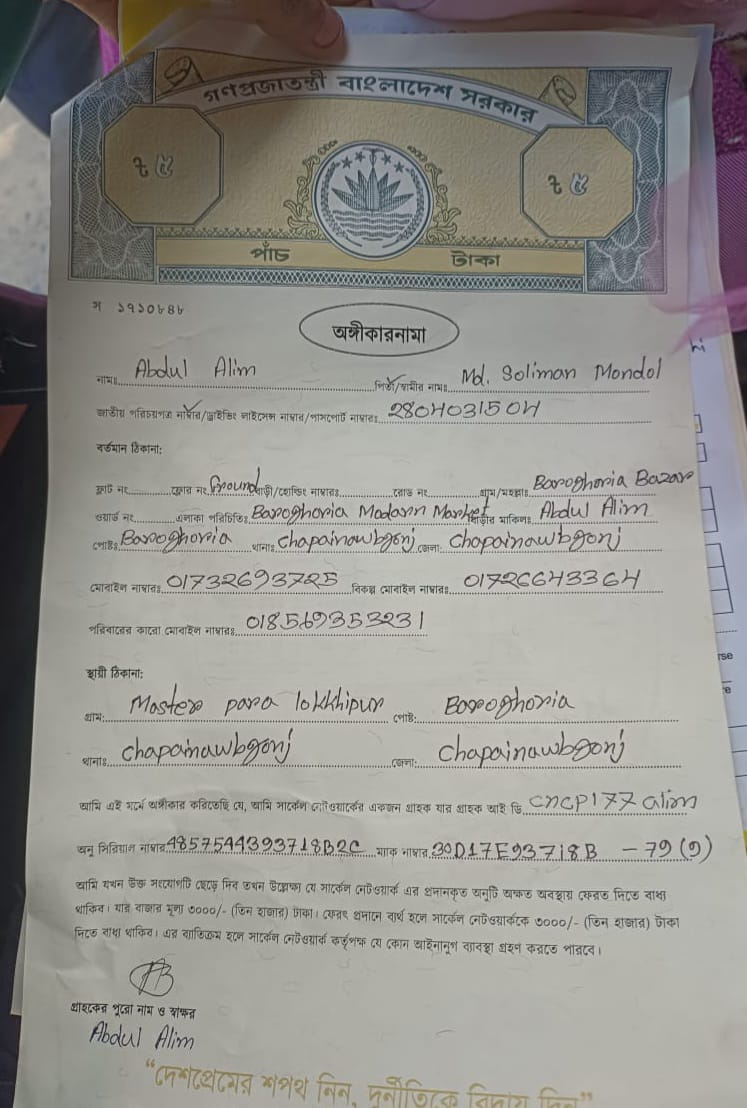 গণপ্রজাতন্ত্রী বাংলাদেশ সরকার
৳ ৫ ৳ ৫
পাঁচ টাকা
স ১৭১০৮৪৮
অঙ্গীকারনামা
নামঃ Abdul Alim পিতা/স্বামীর নামঃ Md. Soliman Mondol
জাতীয় পরিচয়পত্র নাম্বার/ড্রাইভিং লাইসেন্স নাম্বার/পাসপোর্ট নাম্বারঃ 2804031504
বর্তমান ঠিকানা:
ফ্লাট নং ফ্লোর নং Ground বাড়ী/হোল্ডিং নাম্বারঃ রোড নং গ্রাম/মহল্লাঃ Baroghoria Bazar
ওয়ার্ড নং এলাকা পরিচিতিঃ Baroghoria Madann Market বাড়ীর মালিকঃ Abdul Alim
পোষ্টঃ Baroghoria থানাঃ Chapainawbgonj জেলা: Chapainawbgonj
মোবাইল নাম্বারঃ 01732693725 বিকল্প মোবাইল নাম্বারঃ 01726643364
পরিবারের কারো মোবাইল নাম্বারঃ 018569353231
স্থায়ী ঠিকানা:
গ্রাম: Master para lokkhipur পোষ্ট: Baroghoria
থানাঃ Chapainawbgonj জেলা: Chapainawbgonj
আমি এই মর্মে অঙ্গীকার করিতেছি যে, আমি সার্কেল নেটওয়ার্কের একজন গ্রাহক যার গ্রাহক আই ডি CNCP177 alim
অনু সিরিয়াল নাম্বার 4857544393718B2C ম্যাক নাম্বার 30D17E93718B - 79 (9)
আমি যখন উক্ত সংযোগটি ছেড়ে দিব তখন উল্লেক্ষা যে সার্কেল নেটওয়ার্ক এর প্রদানকৃত অনুটি অক্ষত অবস্থায় ফেরত দিতে বাধ্য
থাকিব। যার বাজার মূল্য ৩০০০/- (তিন হাজার) টাকা। ফেরৎ প্রদানে ব্যর্থ হলে সার্কেল নেটওয়ার্ককে ৩০০০/- (তিন হাজার) টাকা
দিতে বাধ্য থাকিব। এর ব্যতিক্রম হলে সার্কেল নেটওয়ার্ক কর্তৃপক্ষ যে কোন আইনানুগ ব্যবস্থা গ্রহণ করতে পারবে।
গ্রাহকের পুরো নাম ও স্বাক্ষর
Abdul Alim
“দেশপ্রেমের শপথ নিন, দুর্নীতিকে বিদায় দিন”